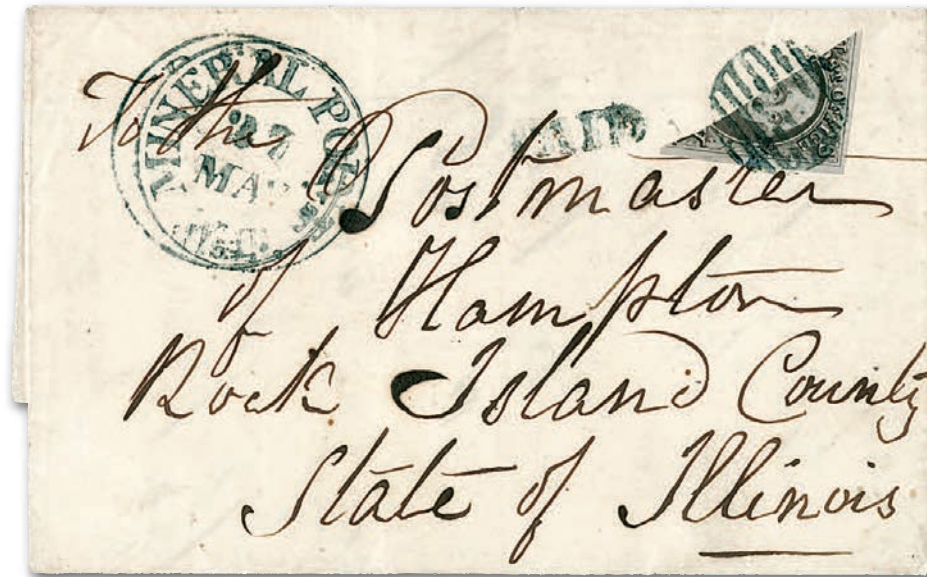 MINERAL POINT
27
MAR
PAID
To the
Postmaster
of Hampton
Rock Island County
State of Illinois